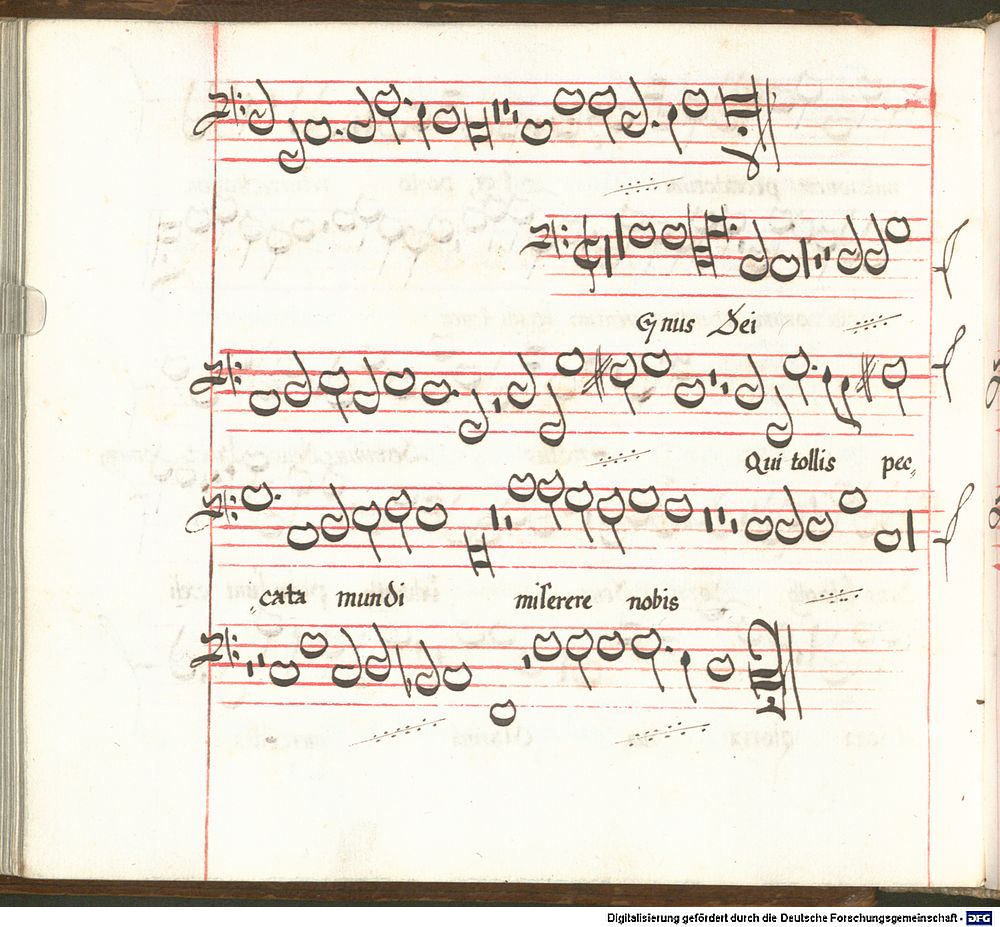 Gnus Dei
Qui tollis pec-
cata mundi miserere nobis
Digitalisierung gefördert durch die Deutsche Forschungsgemeinschaft - DFG